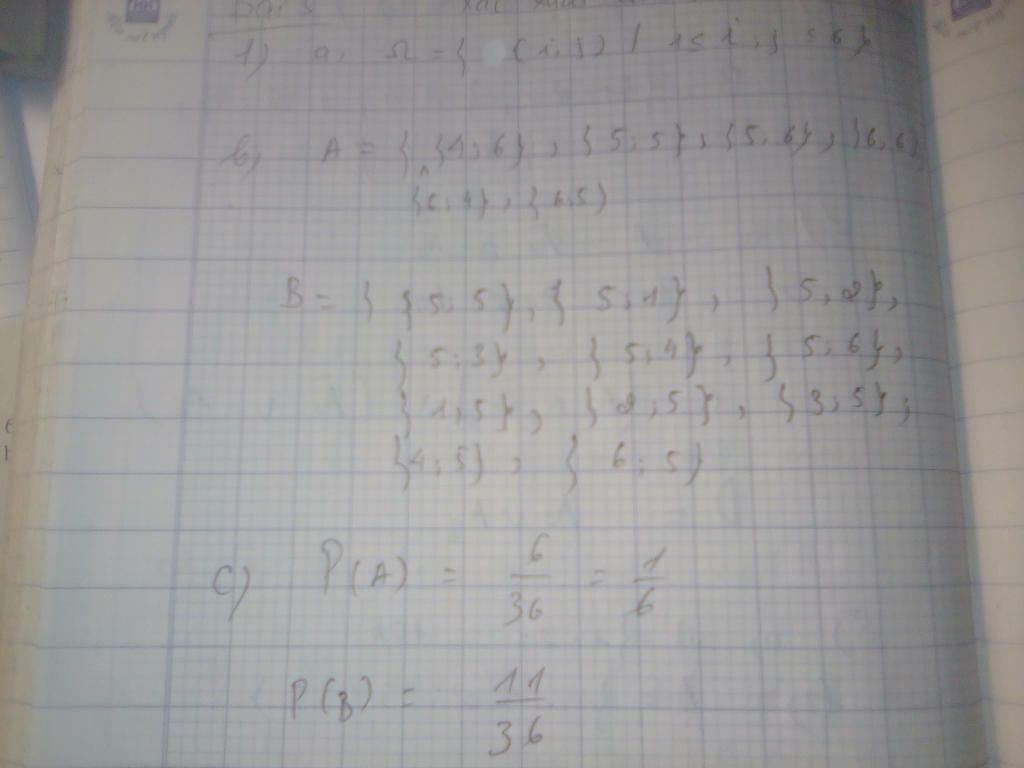 1) a, Ω = { (i, j) / 1 ≤ i, j ≤ 6}
b, A = { {4;6}, {5;5}, {5;6}, {6;6},
{6;4}, {6;5}
B = { {5;5}, {5;1}, {5,2},
{5;3}, {5,4}, {5;6},
{1;5}, {2;5}, {3;5},
{4;5}, {6;5}
c) P(A) = 6/36 = 1/6
P(B) = 11/36